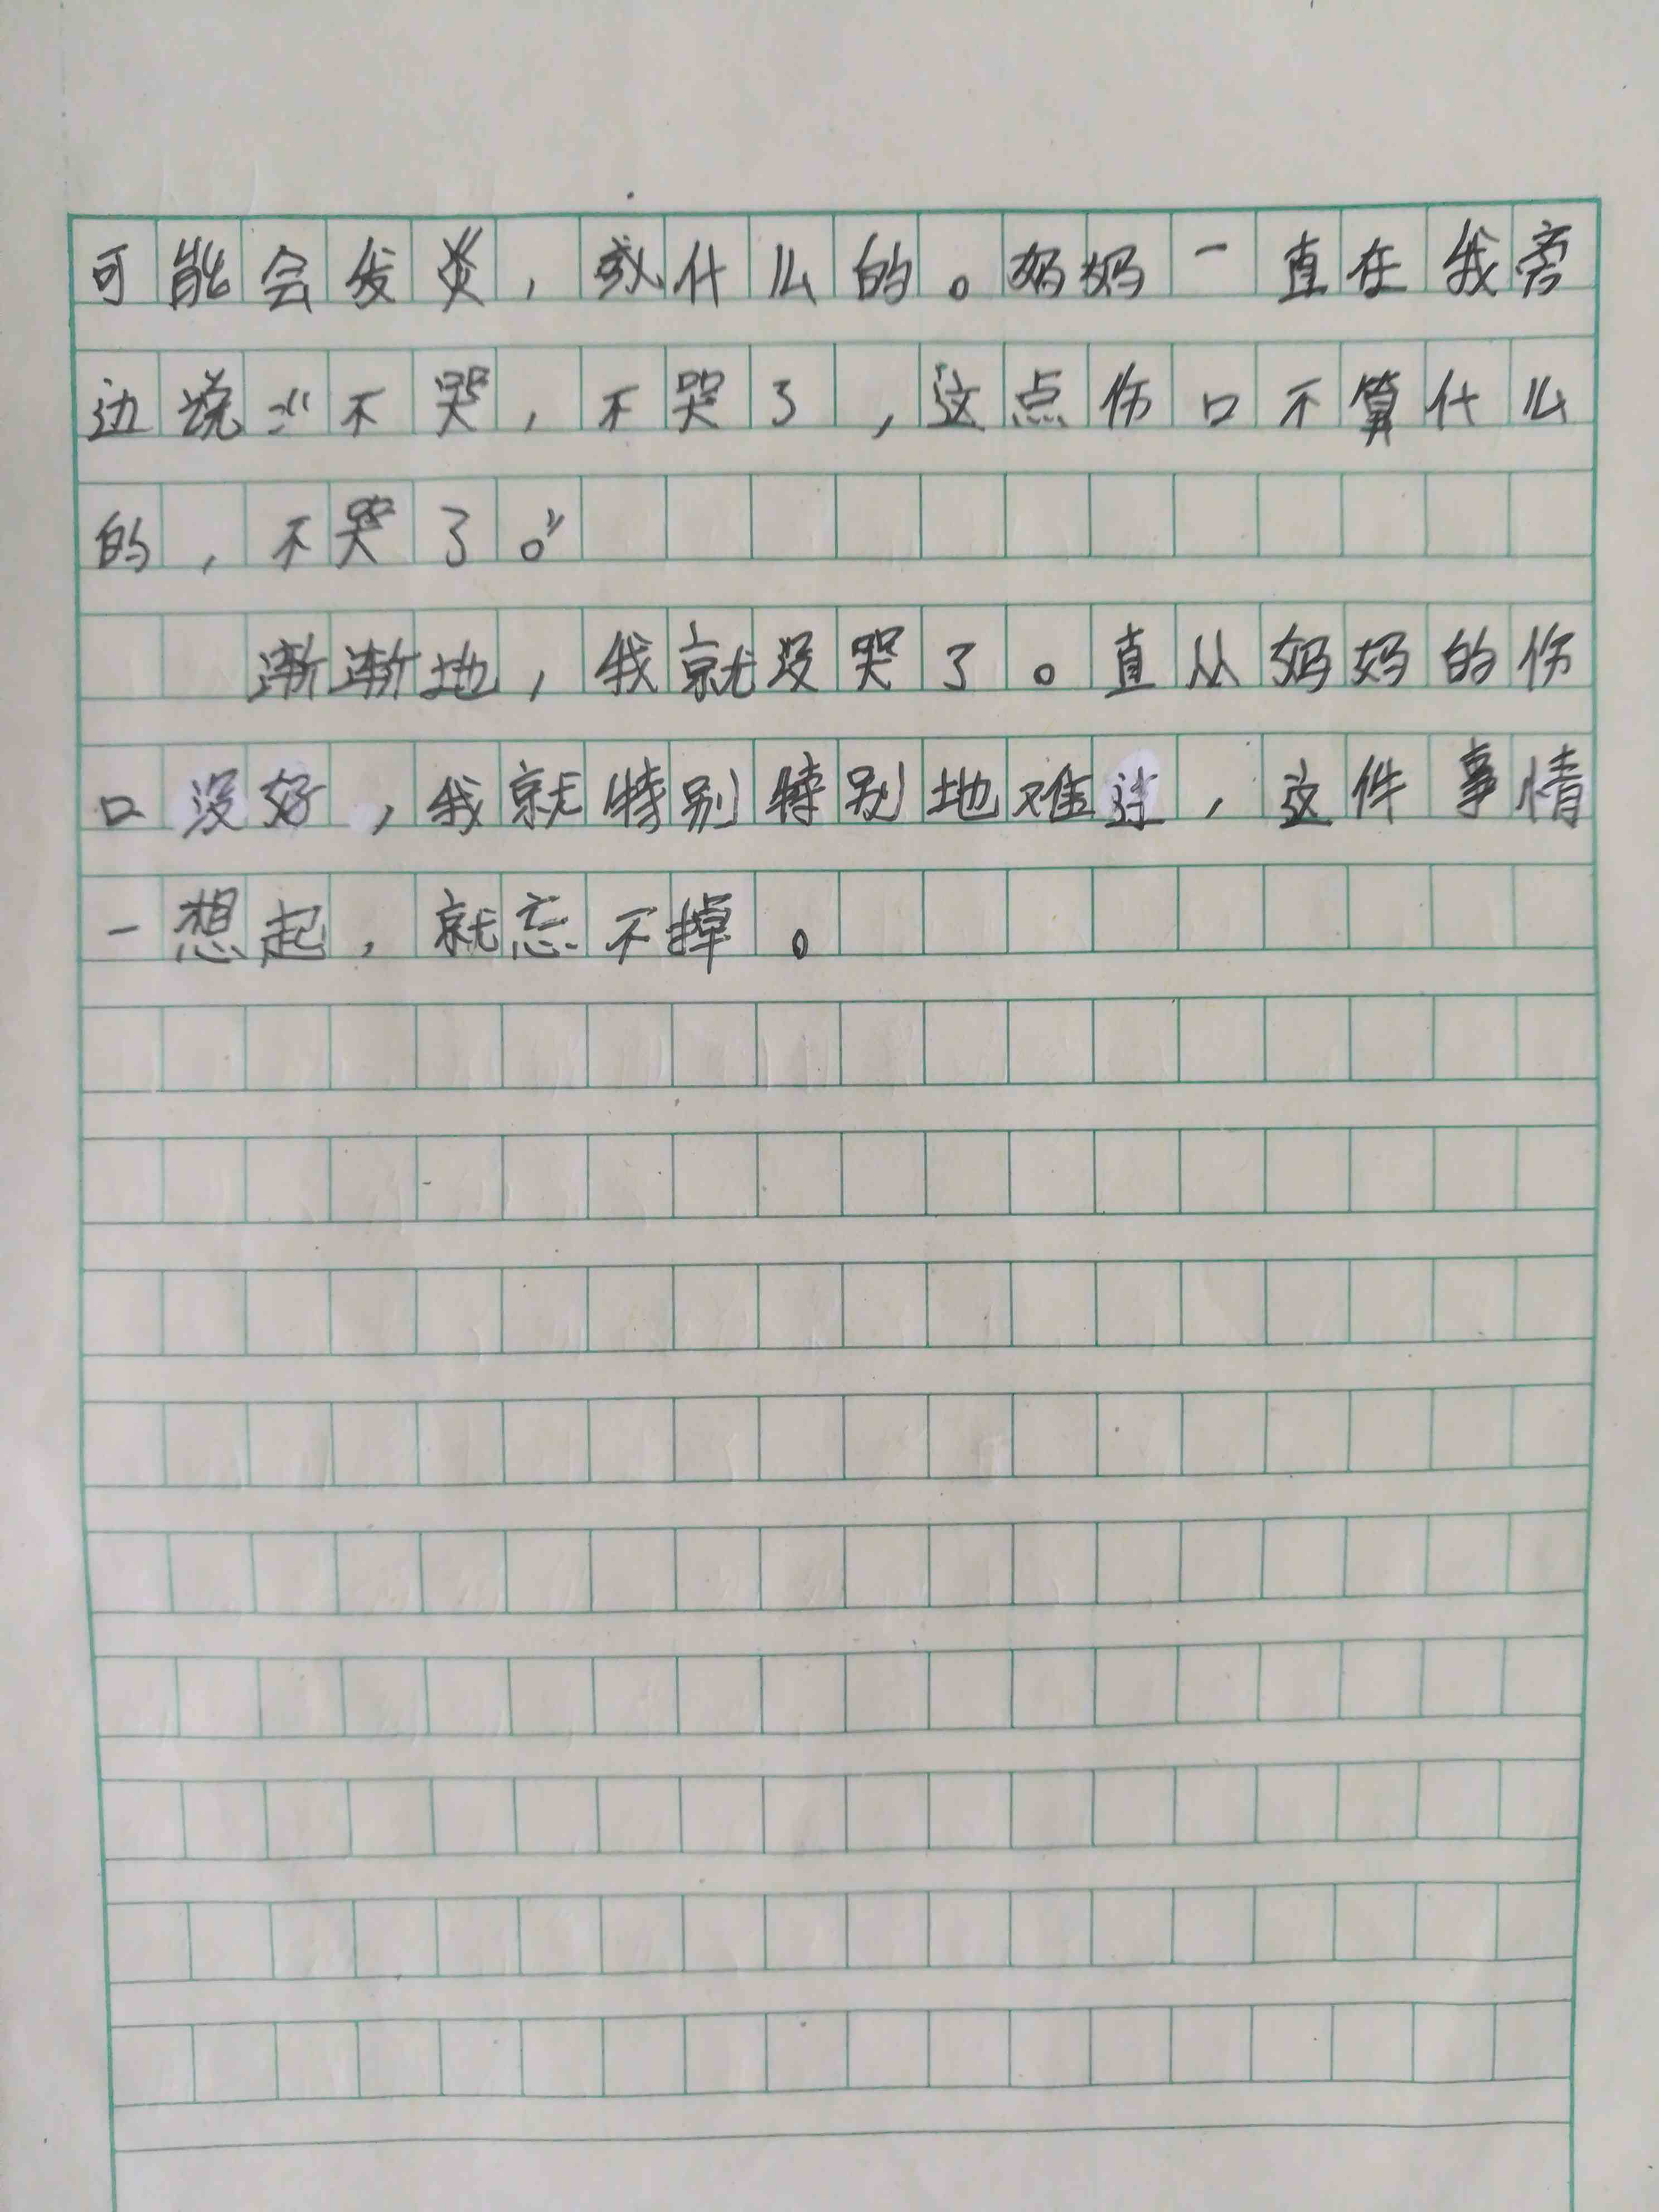 可能会发炎，或什么的。妈妈一直在我旁
边说：“不哭，不哭了，这点伤口不算什么
的，不哭了。”
渐渐地，我就没哭了。直从妈妈的伤
口没好，我就特别特别地难过，这件事情
一想起，就忘不掉。